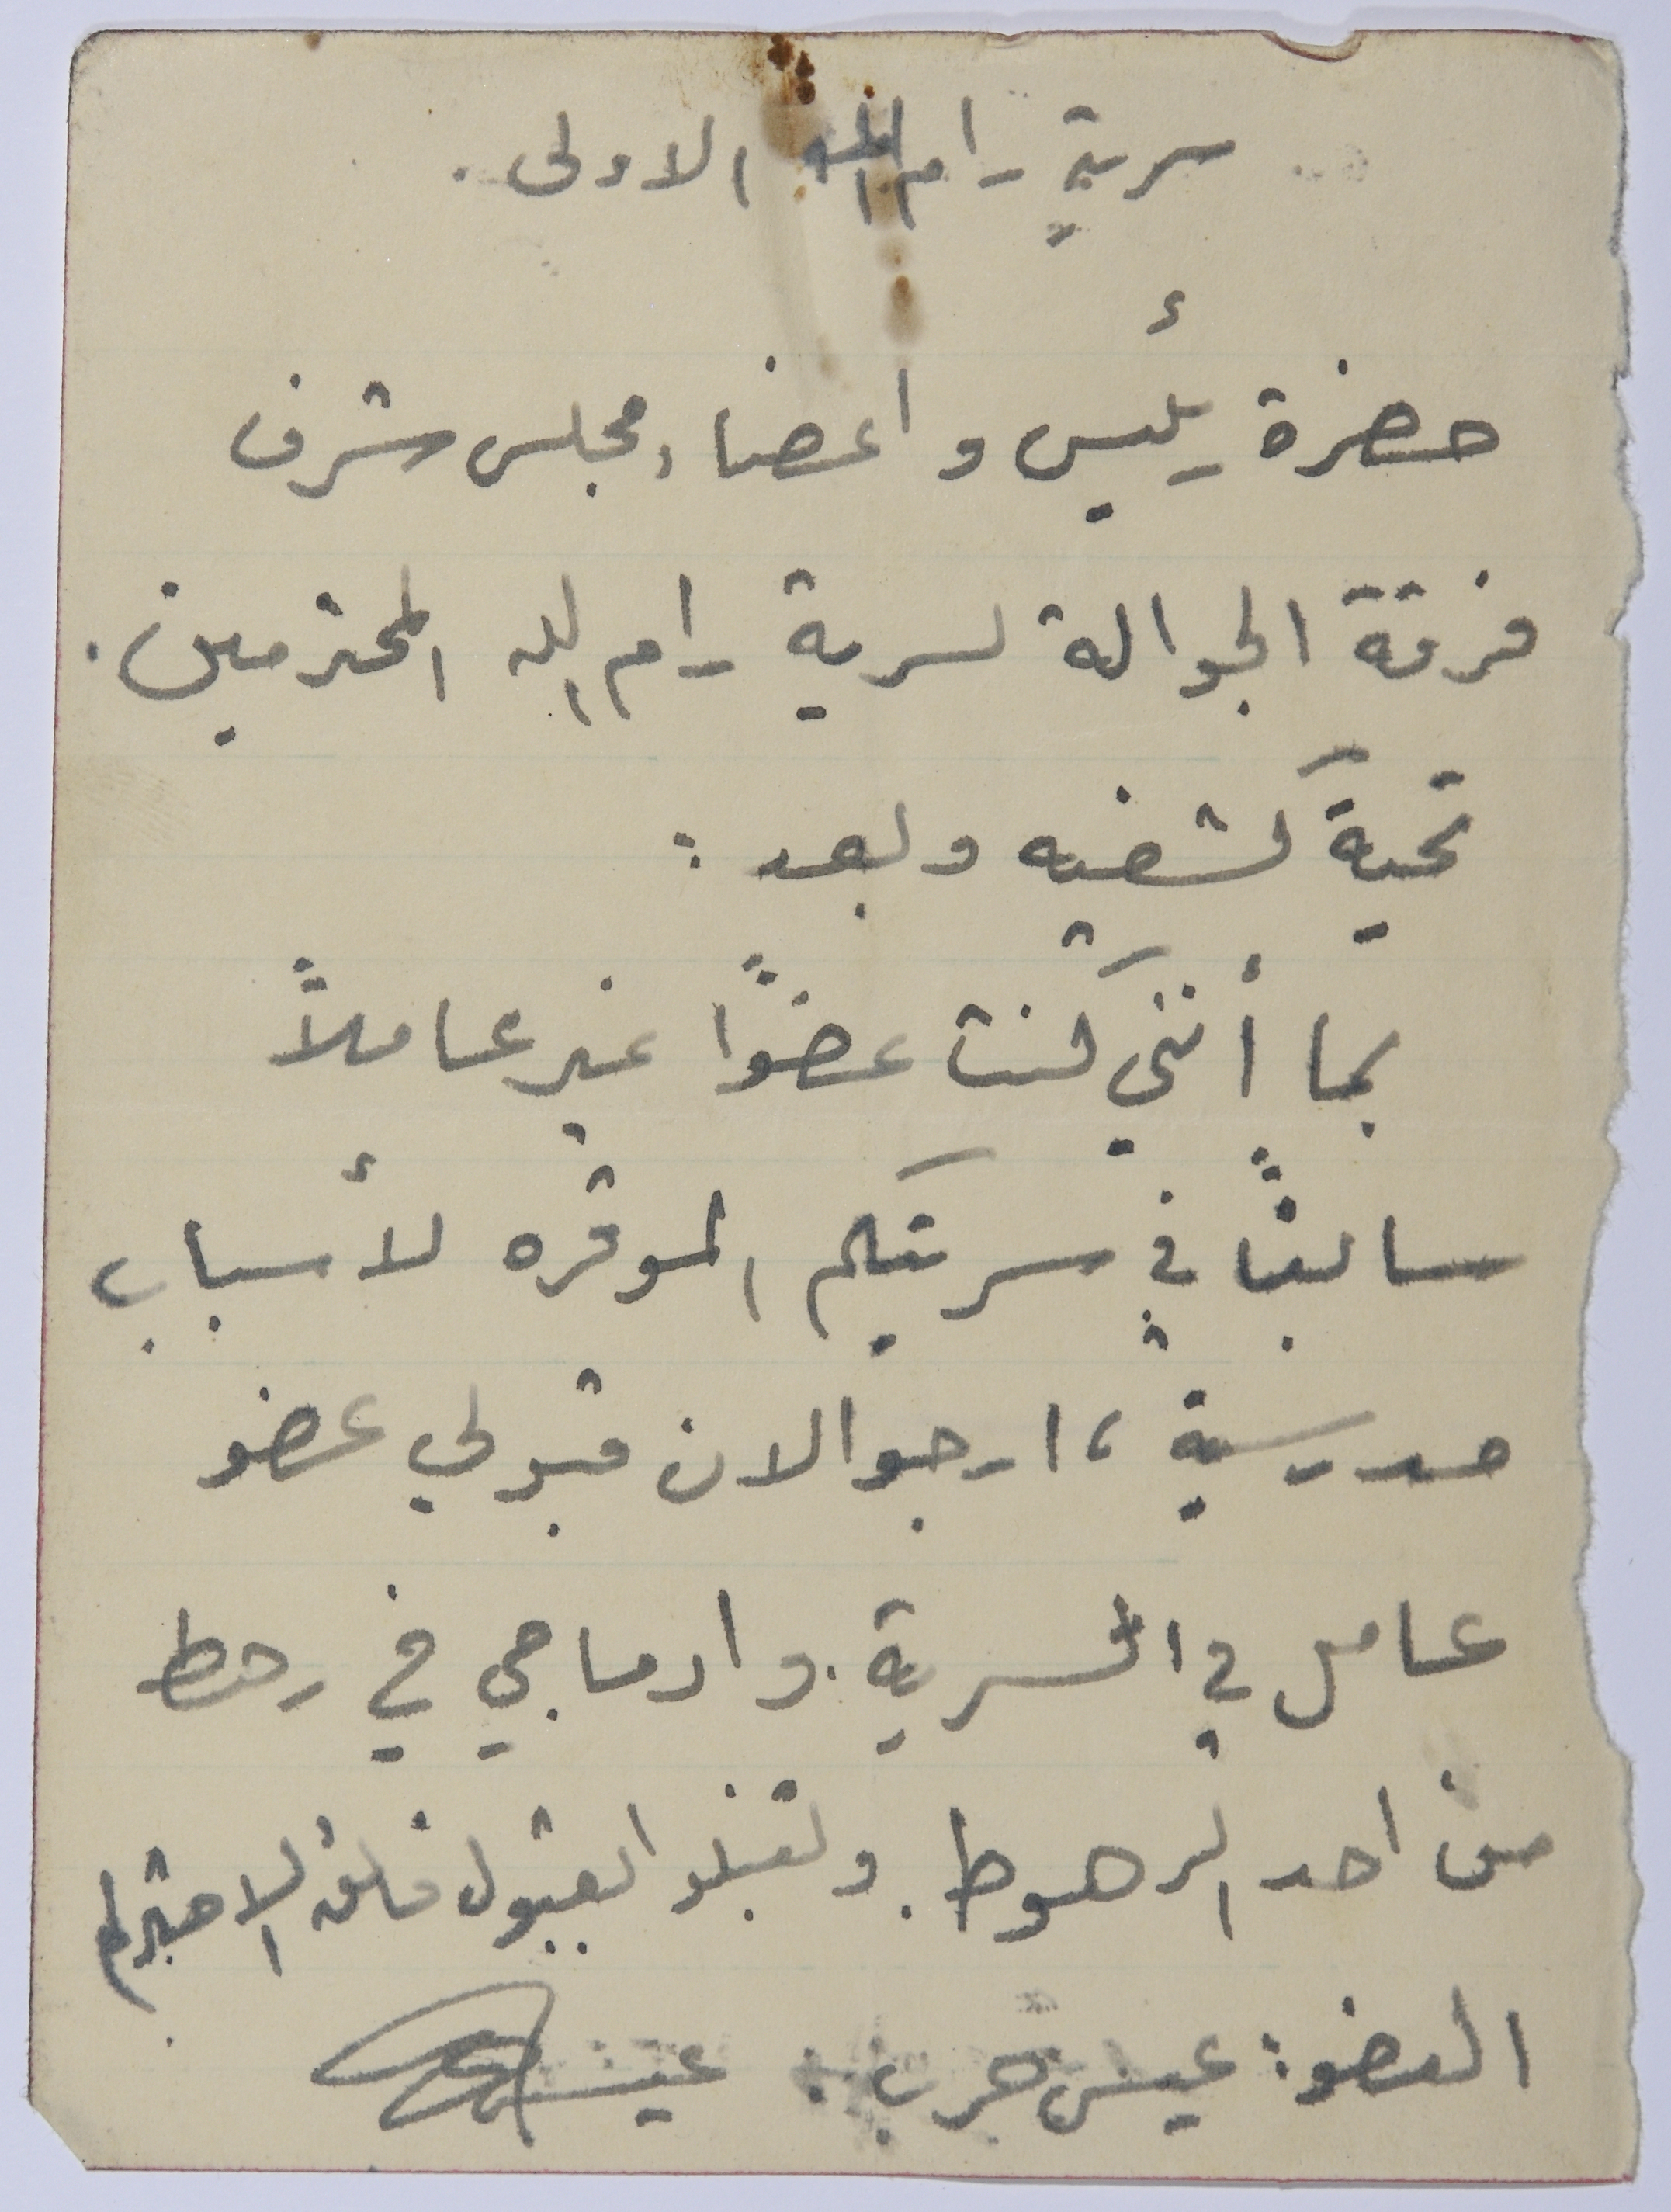 سرية رام الله الاولى.
حضرة رئيس و اعضاء مجلس شرف
فرقة الجوالة لسرية رام الله المحترمين.
تحية كشفيه وبعد:
بما أنني كنت عضوًا غير عاملاً
سابقًا في سريتكم الموقره لأسباب
مدرسية، ارجو الان قبولي عضو
عامل في السرية. وادماجي في رهط
من احد الرهوط. ولتقبلو القبول فائق الاحترام
العضو: عيسى حرب. عيسى